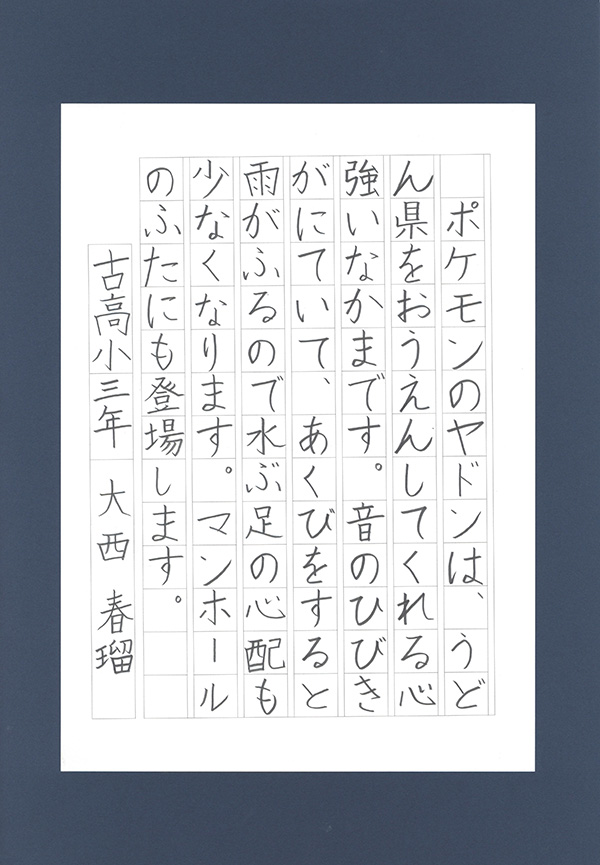 ポケモンのヤドンは、うど
ん県をおうえんしてくれる心
強いなかまです。音のひびき
がにていて、あくびをすると
雨がふるので水ぶ足の心配も
少なくなります。マンホール
のふたにも登場します。
古高小三年 大西 春瑠